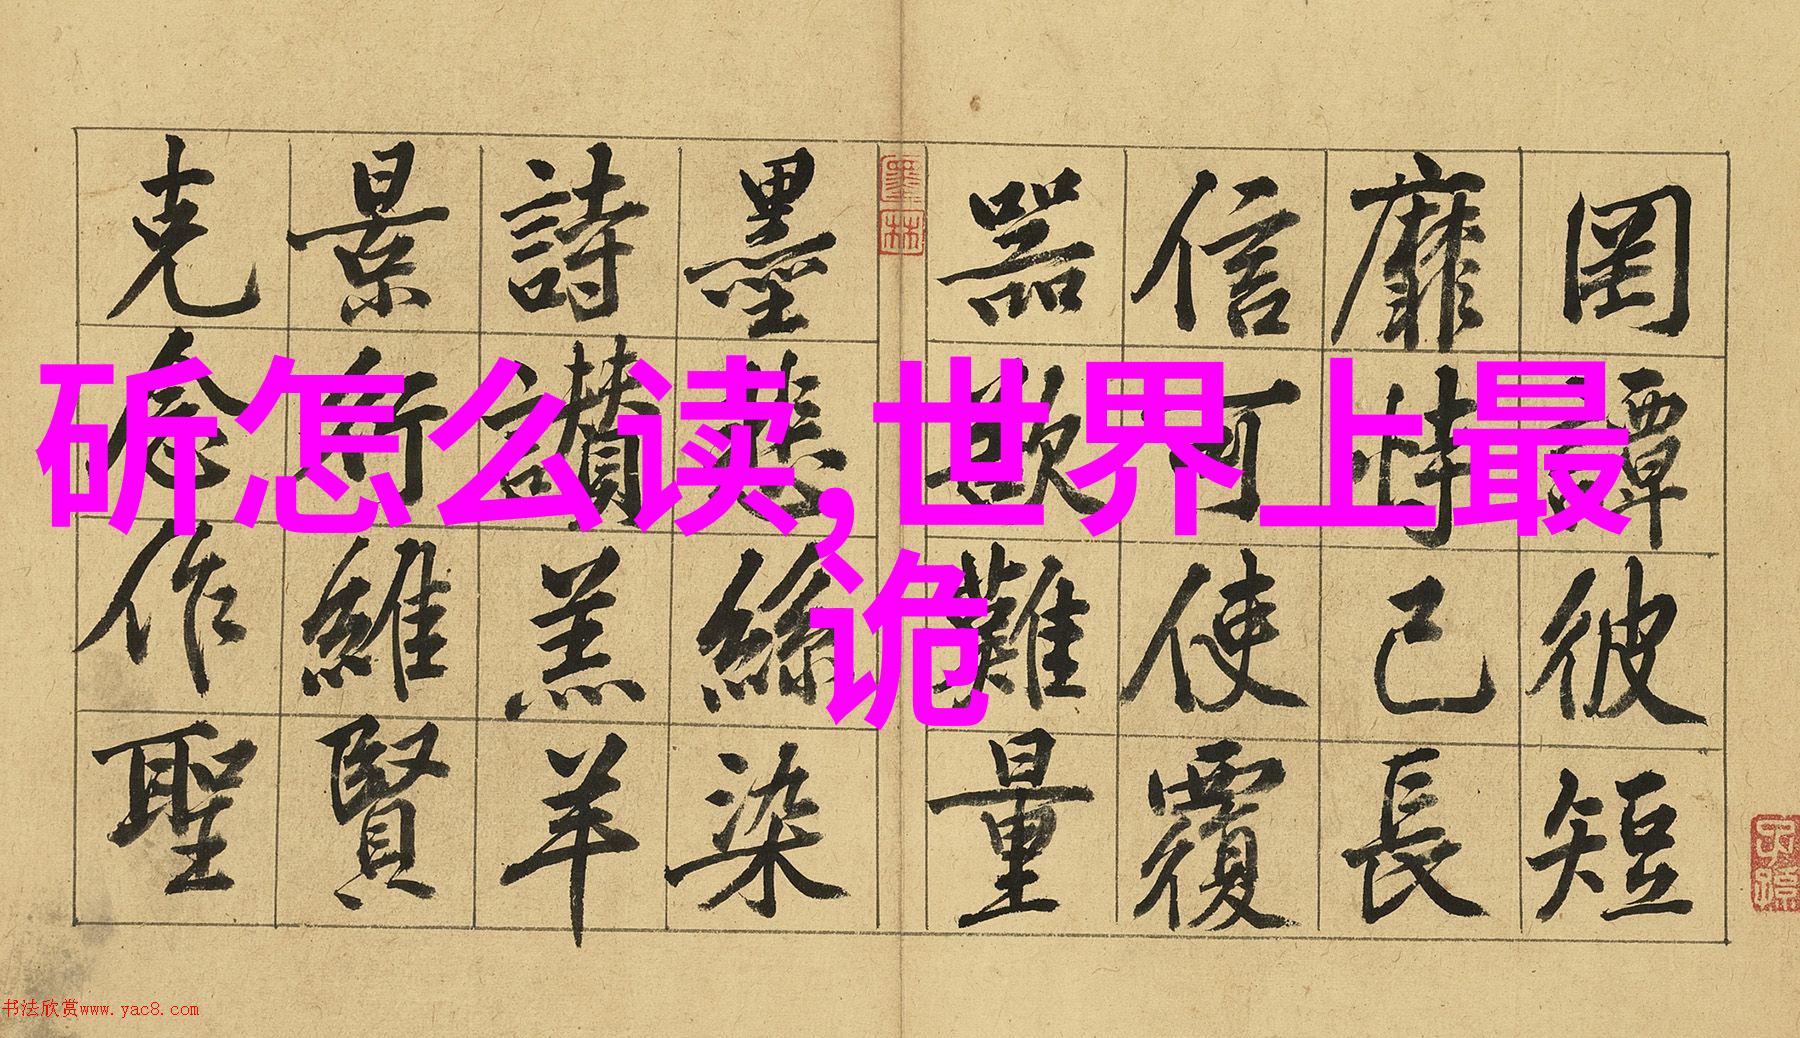 斫怎么读,世界上最
诡
罔談彼短
靡恃己長
信可使覆
器欲難量
墨悲絲染
詩讚羔羊
景行維賢
克念作聖
墨林
书法欣赏www.yac8.com